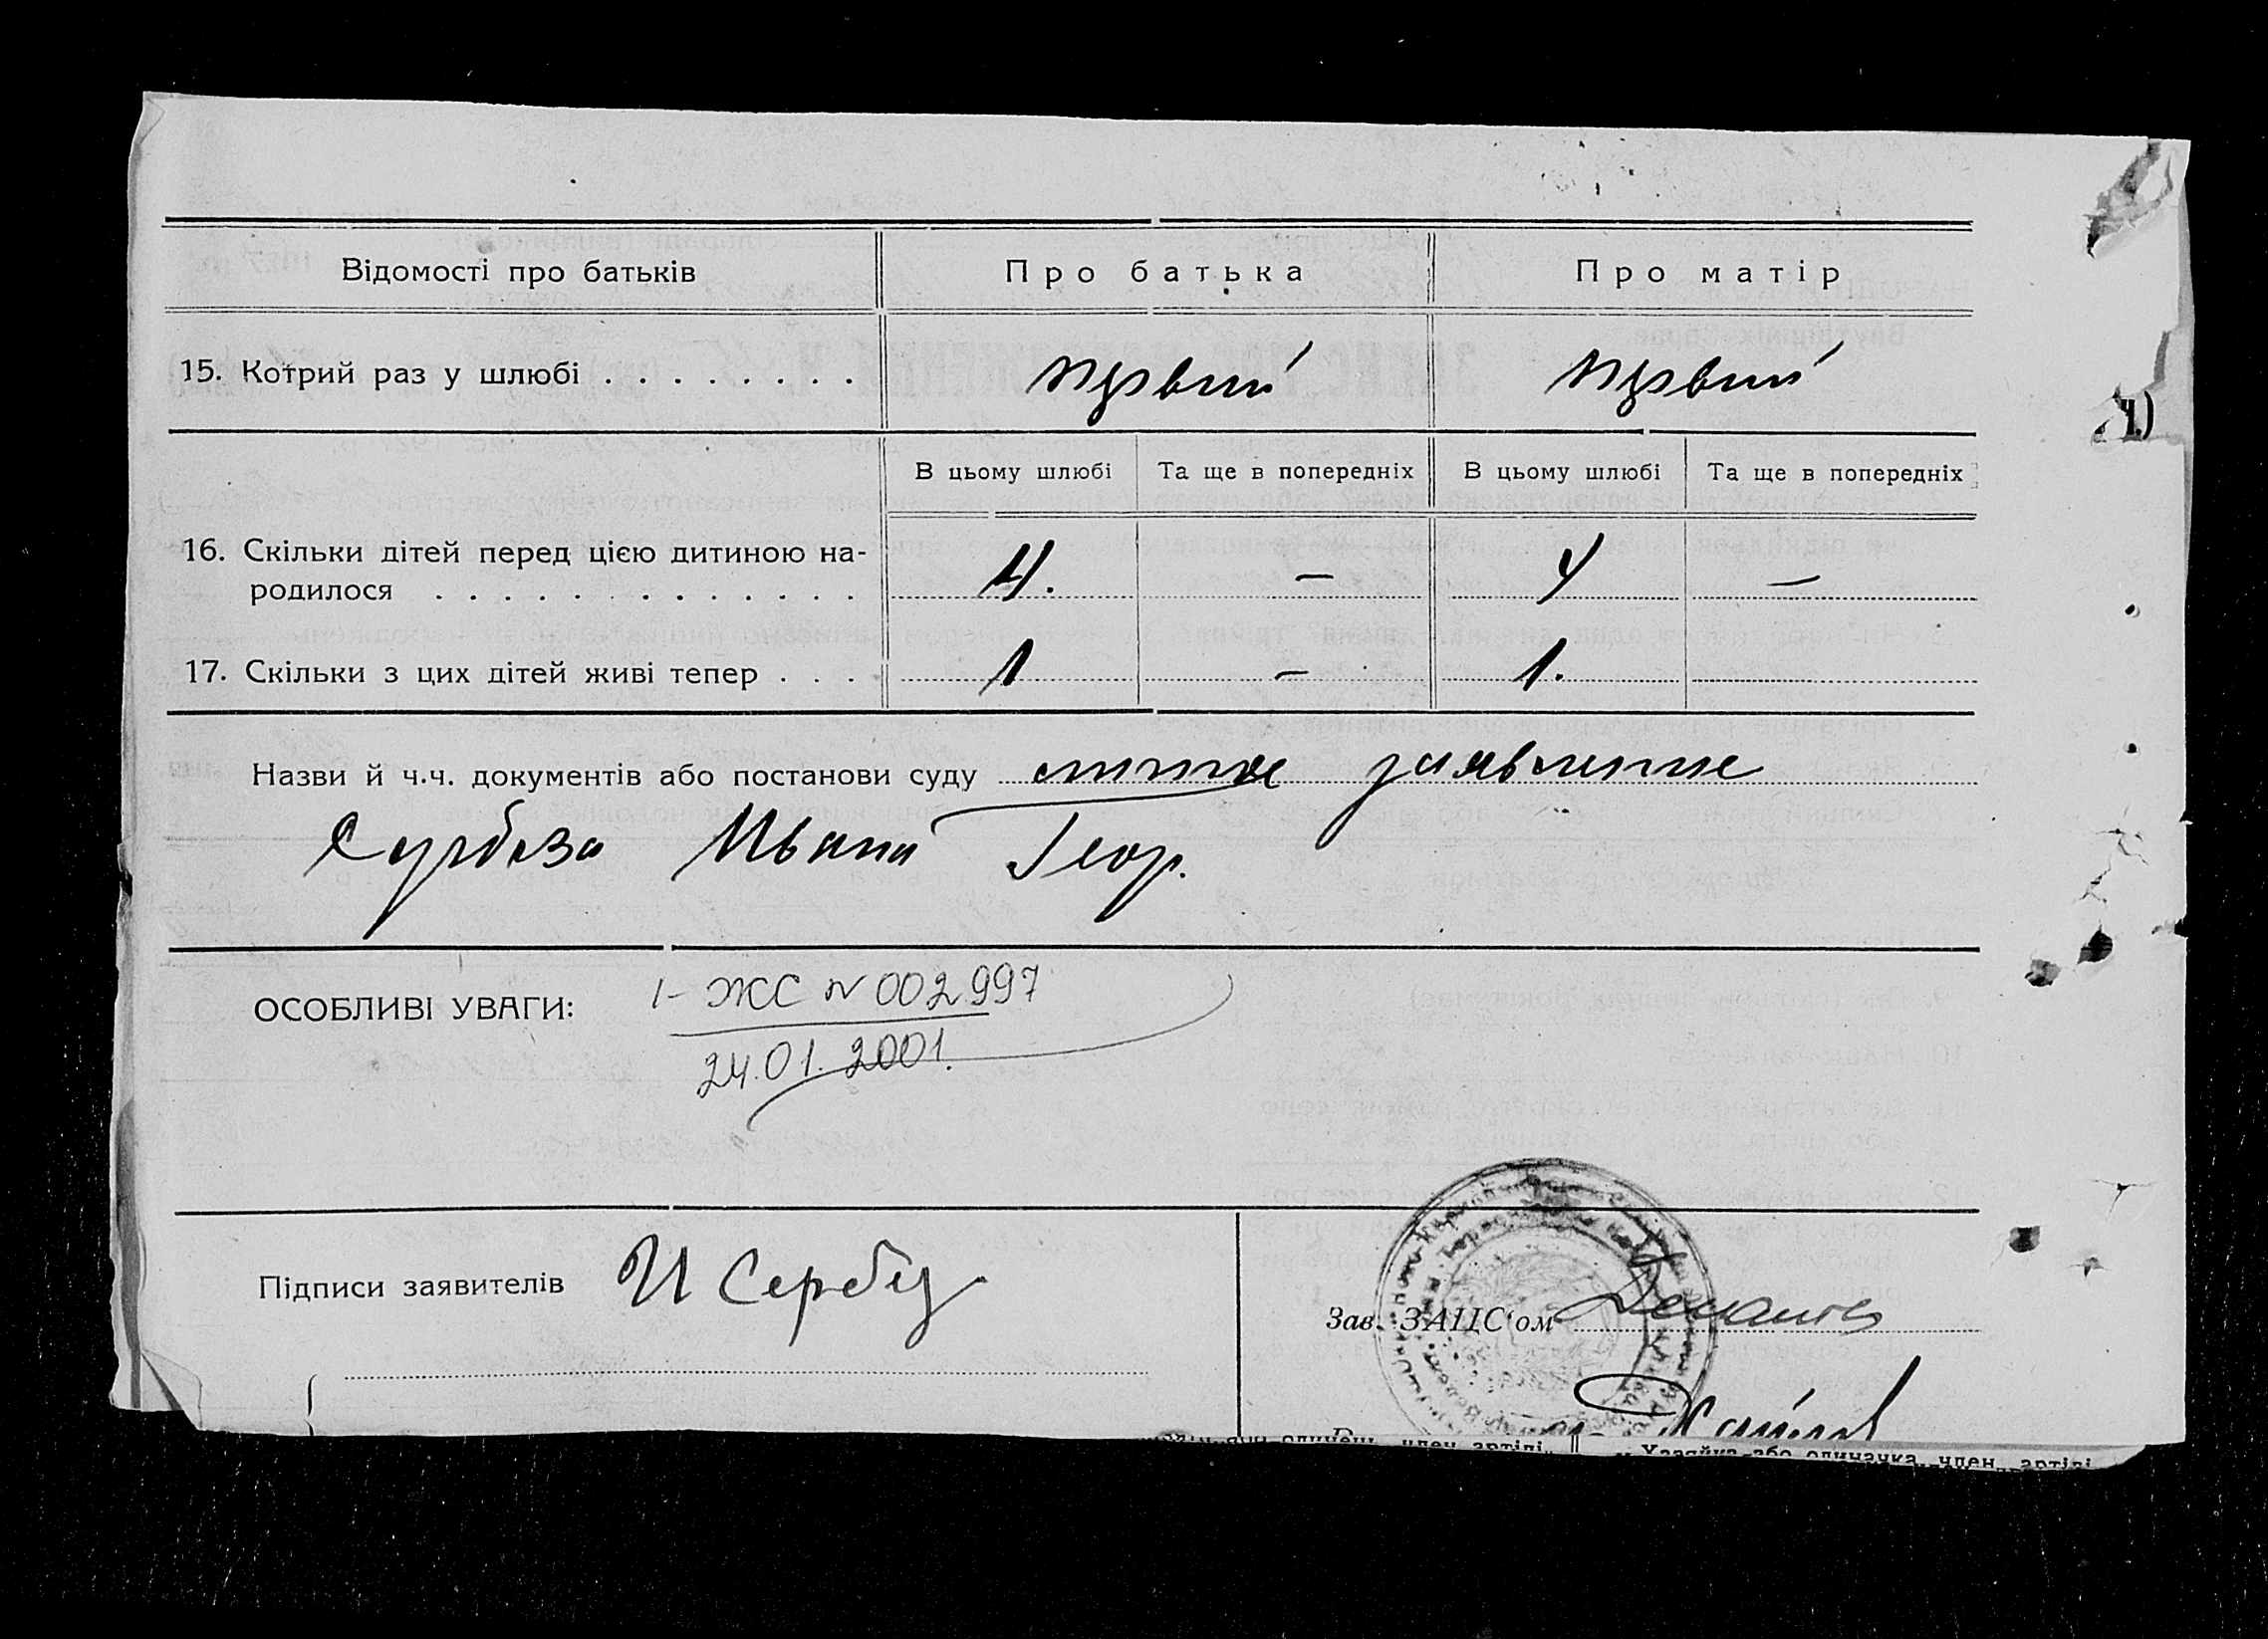 Відомості про батьків
Про батька
Про матір
15. Котрий раз у шлюбі . . . . . . . .
первий
первий
В цьому шлюбі
Та ще в попередніх
В цьому шлюбі
Та ще в попередніх
16. Скільки дітей перед цією дитиною на-
родилося . . . . . . . . . . . . .
4.
—
4
—
17. Скільки з цих дітей живі тепер . . . .
1
—
1.
Назви й ч.ч. документів або постанови суду личное заявление
Ивана Геор.
ОСОБЛИВІ УВАГИ:
I - ЖС № 002997
24.01.2001.
Підписи заявителів И Сербу
Зав. ЗАЦС‘ом
член артілі
Хазяйка або одиначка член артілі